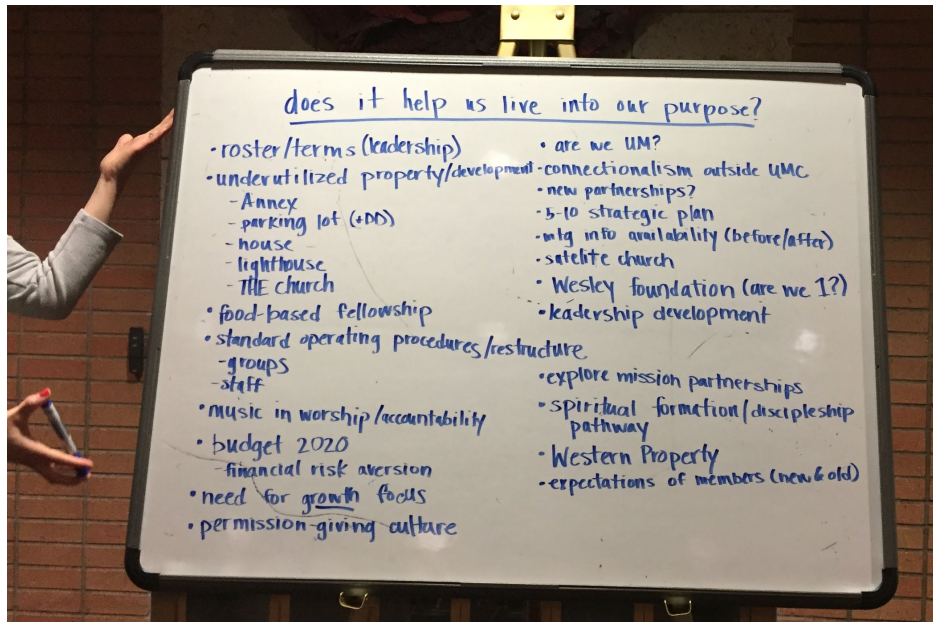 does it help us live into our purpose?
• roster/terms (leadership)
• underutilized property/development
- Annex
- parking lot (+DD)
- house
- lighthouse
- THE church
• food-based fellowship
• standard operating procedures/restructure
- groups
- staff
• music in worship/accountability
• budget 2020
- financial risk aversion
• need for growth focus
• permission-giving culture
• are we UM?
• connectionalism outside UMC
• new partnerships?
• 5-10 strategic plan
• mtg info availability (before/after)
• satelite church
• Wesley foundation (are we 1?)
• leadership development
• explore mission partnerships
• spiritual formation/discipleship
pathway
• Western Property
• expectations of members (new & old)